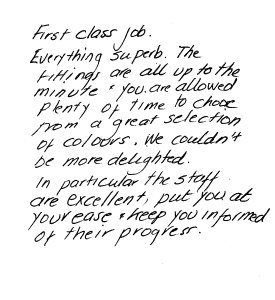 First class job.
Everything superb. The
fittings are all up to the
minute & you are allowed
plenty of time to choose
from a great selection
of colours. We couldn't
be more delighted.
In particular the staff
are excellent, put you at
your ease & keep you informed
of their progress.